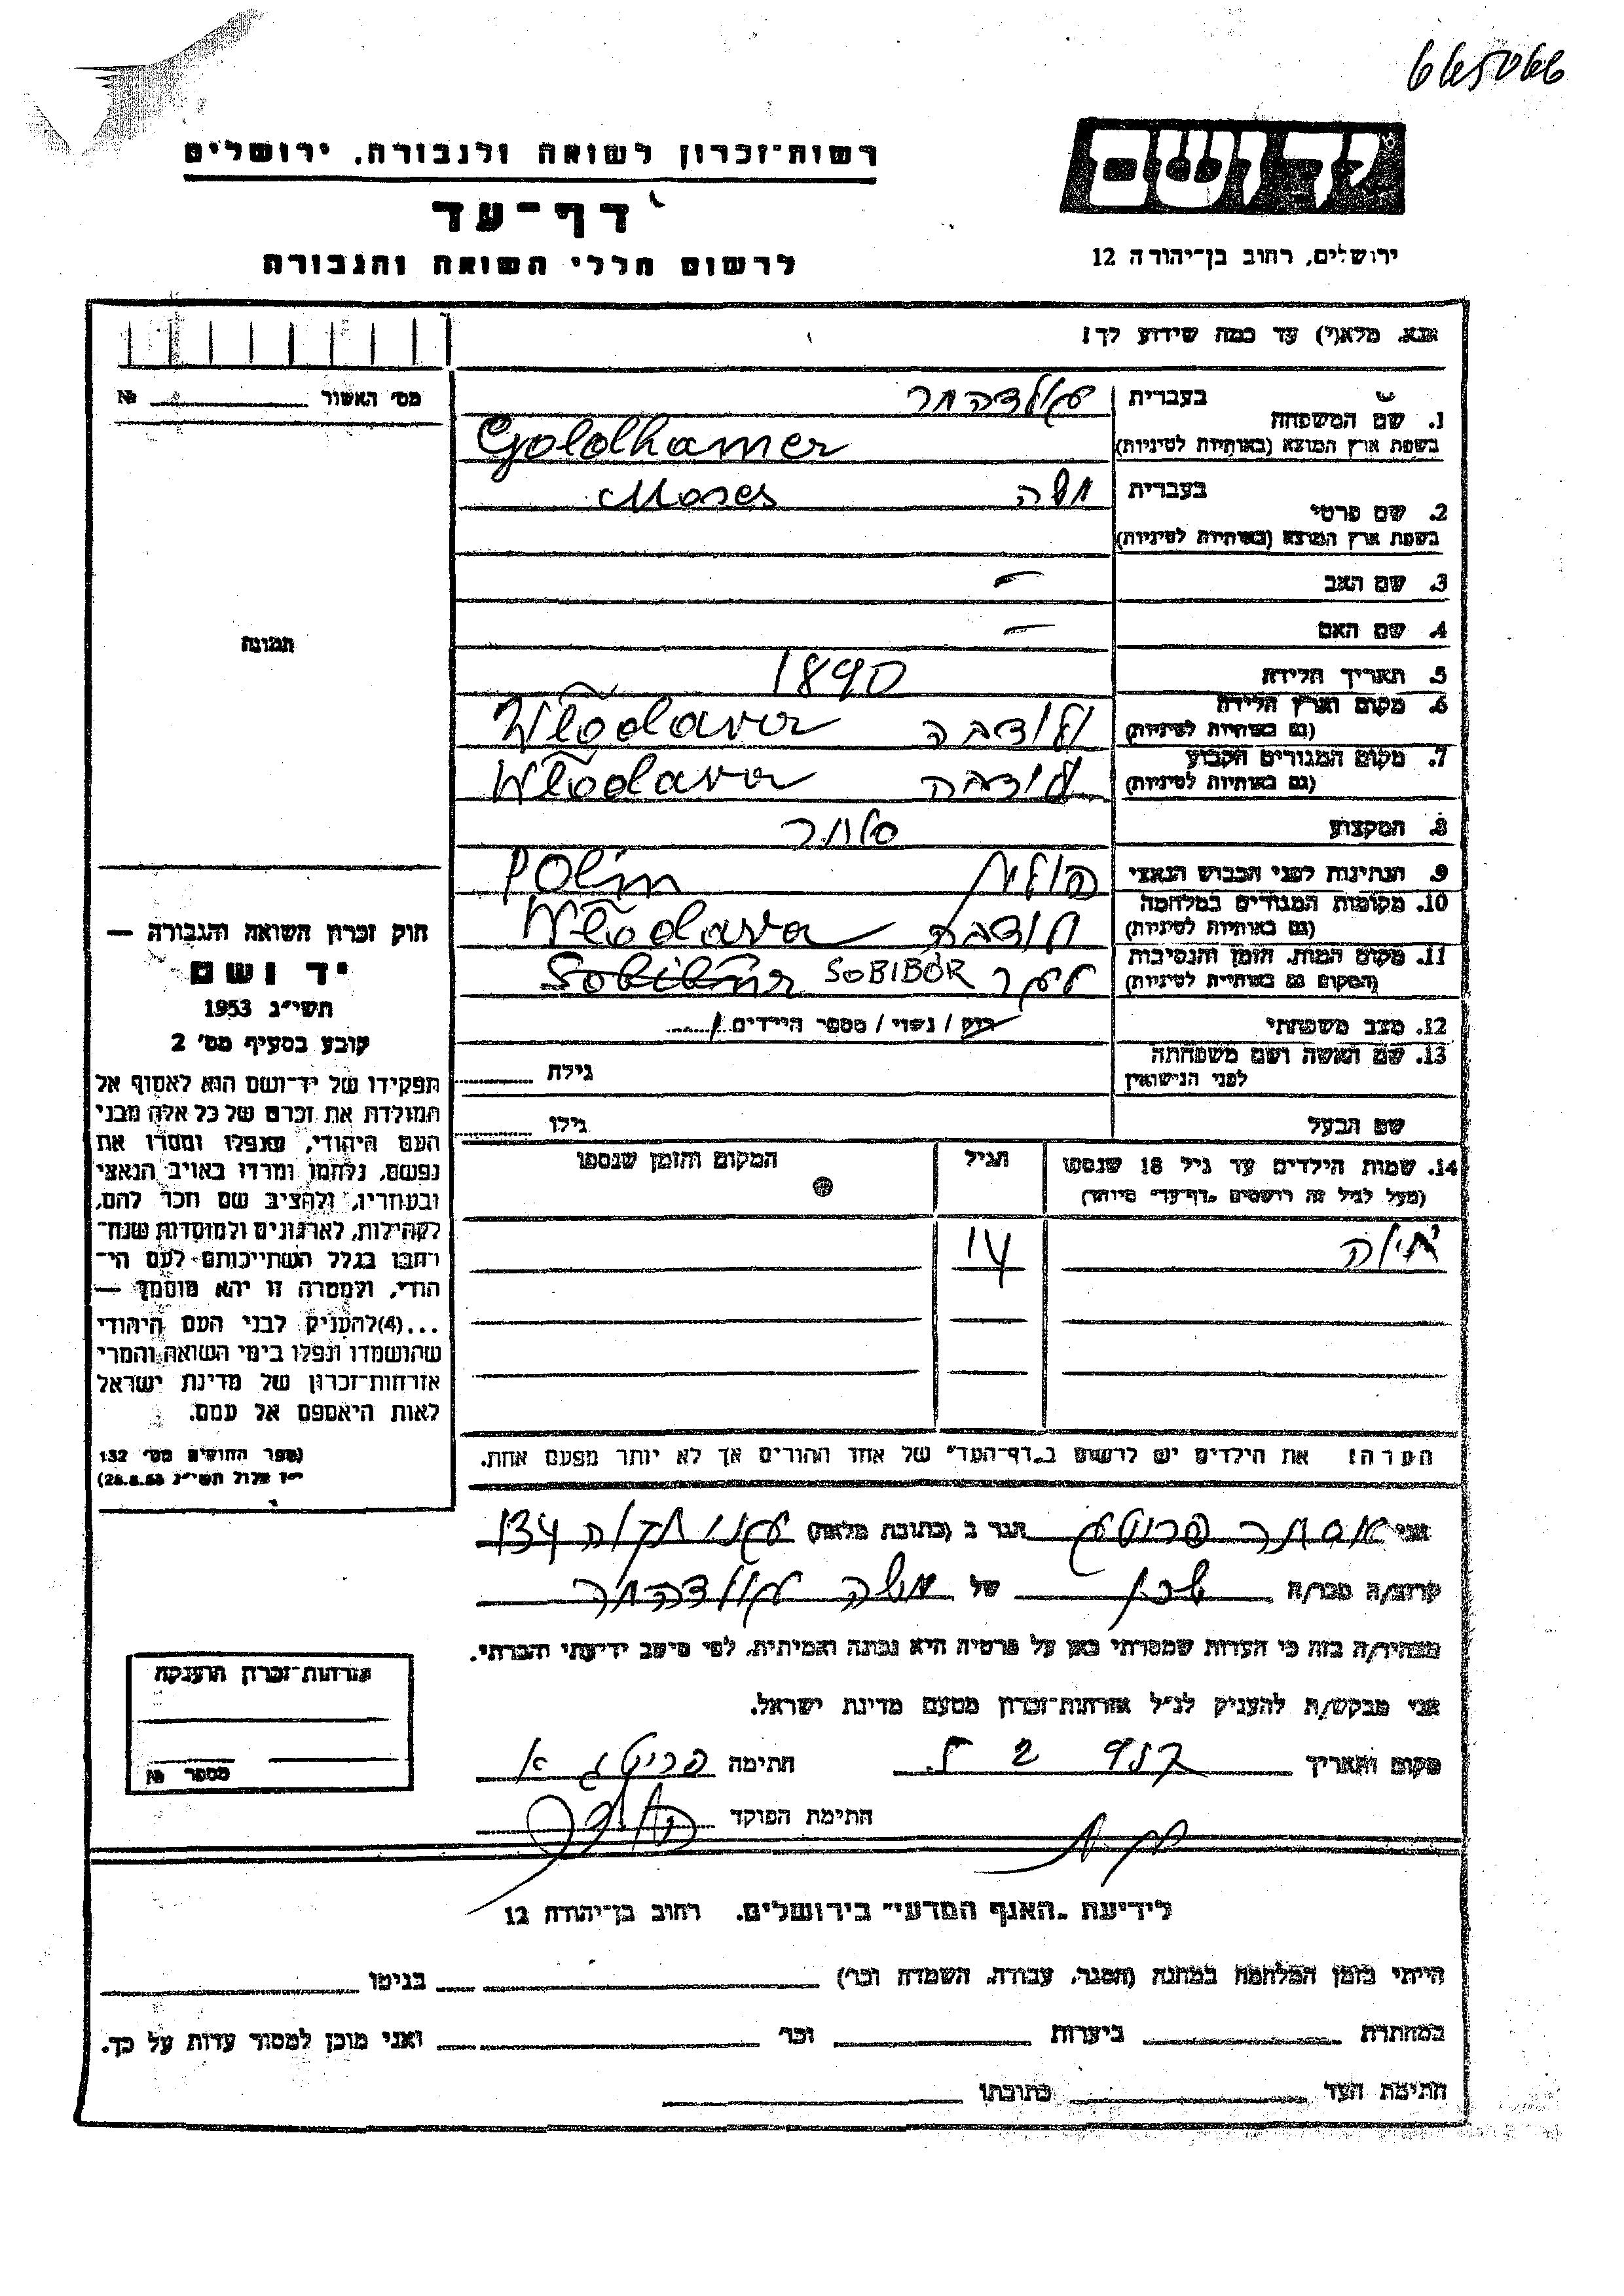 665066
יד ושם
ירושלים, רחוב בן־יהודה 12
רשות־זכרון לשואה ולגבורה, ירושלים
דף־עד
לרשום חללי השואה והגבורה
אנא, מלא(י) עד כמה שידוע לך!
מס׳ האשור № 
1. שם המשפחה
בעברית גולדהמר
בשפת ארץ המוצא (באותיות לטיניות) Goldhamer
2. שם פרטי
בעברית משה Moses
בשפת ארץ המוצא (באותיות לטיניות)
3. שם האב —
4. שם האם —
5. תאריך הלידה 1890
6. מקום וארץ הלידה
(גם באותיות לטיניות) ולודבה Włodava
7. מקום המגורים הקבוע
(גם באותיות לטיניות) Włodava
8. המקצוע סוחר
9. הנתינות לפני הכבוש הנאצי Polin
10. מקומות המגורים במלחמה
(גם באותיות לטיניות) Włodava
11. מקום המות, הזמן והנסיבות
(המקום גם באותיות לטיניות) SOBIBÓR
12. מצב משפחתי רווק / נשוי / מספר הילדים 1
13. שם האשה ושם משפחתה
לפני הנישואין
גילה
שם הבעל גילו
תמונה
חוק זכרון השואה והגבורה —
יד ושם
תשי״ג 1953
קובע בסעיף מס׳ 2
תפקידו של יד־ושם הוא לאסוף אל
המולדת את זכרם של כל אלה מבני
העם היהודי, שנפלו ומסרו את
נפשם, נלחמו ומרדו באויב הנאצי
ובעוזריו, ולהציב שם וזכר להם,
לקהילות, לארגונים ולמוסדות שנח־
רבו בגלל השתייכותם לעם הי־
הודי, ולמטרה זו יהא מוסמך —
...(4)להעניק לבני העם היהודי
שהושמדו ונפלו בימי השואה והמרי
אזרחות־זכרון של מדינת ישראל
לאות היאספם אל עמם.
(ספר החוקים מס׳ 132
י״ז אלול תשי״ג 28.8.53)
14. שמות הילדים עד גיל 18 שנספו
(מעל לגיל זה רושמים „דף־עד״ מיוחד)
הגיל
המקום והזמן שנספו
14
הערה! את הילדים יש לרשום ב„דף־העד״ של אחד ההורים אך לא יותר מפעם אחת.
אני אסתר הגר ב (כתובת מלאה) 134
קרוב/ה מכר/ה שכן של משה גולדהמר
מצהיר/ה בזה כי העדות שמסרתי כאן על פרטיה היא נכונה ואמיתית, לפי מיטב ידיעתי והכרתי.
אני מבקש/ת להעניק לנ״ל אזרחות־זכרון מטעם מדינת ישראל.
מקום ותאריך חתימה
חתימת הפוקד
אזרחות־זכרון הוענקה
מספר №
לידיעת „האגף המדעי״ בירושלים, רחוב בן־יהודה 12
הייתי בזמן המלחמה במחנה (הסגר, עבודה, השמדה וכו׳) בגיטו
במחתרת ביערות וכו׳ ואני מוכן למסור עדות על כך.
חתימת העד כתובתו